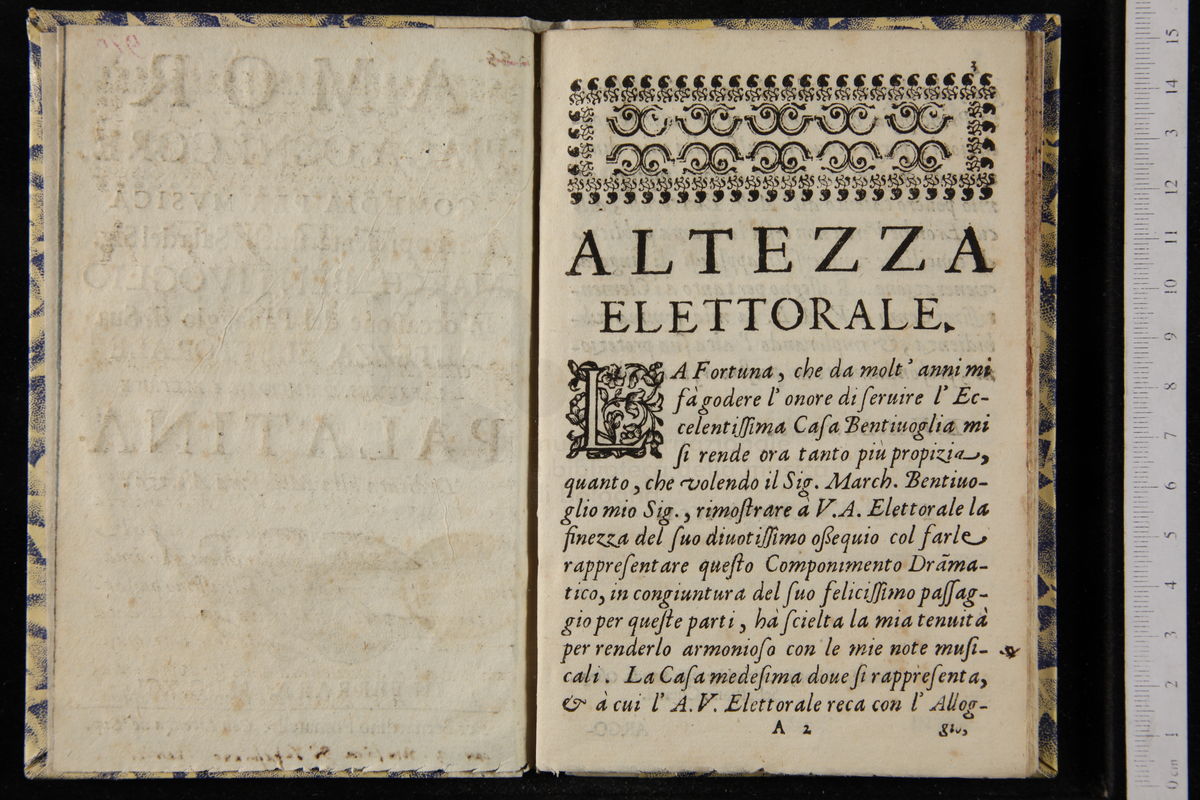 3
ALTEZZA
ELETTORALE.
LA Fortuna, che da molt' anni mi
fà godere l' onore di ſeruire l' Ec-
celentiſſima Caſa Bentiuoglia mi
ſi rende ora tanto più propizia,
quanto, che volendo il Sig. March. Bentiuo-
glio mio Sig., rimoſtrare a V.A. Elettorale la
finezza del ſuo diuotiſſimo oſſequio col farle
rappreſentare queſto Componimento Drãma-
tico, in congiuntura del ſuo feliciſſimo paſſag-
gio per queſte parti, hà ſcielta la mia tenuità
per renderlo armonioſo con le mie note muſi-
cali. La Caſa medeſima doue ſi rappreſenta,
& à cui l' A.V. Elettorale reca con l' Allog-
A 2
gio,